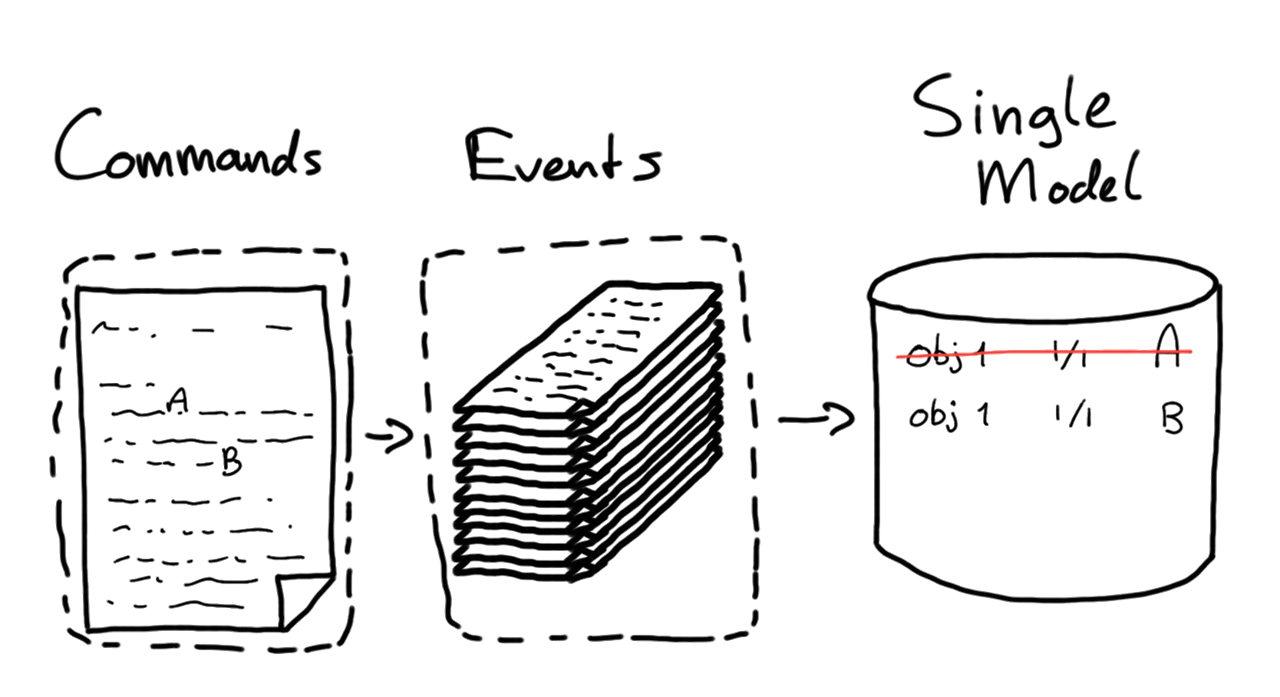 Commands
Events
Single
Model
A
B
obj 1 1/1 A
obj 1 1/1 B